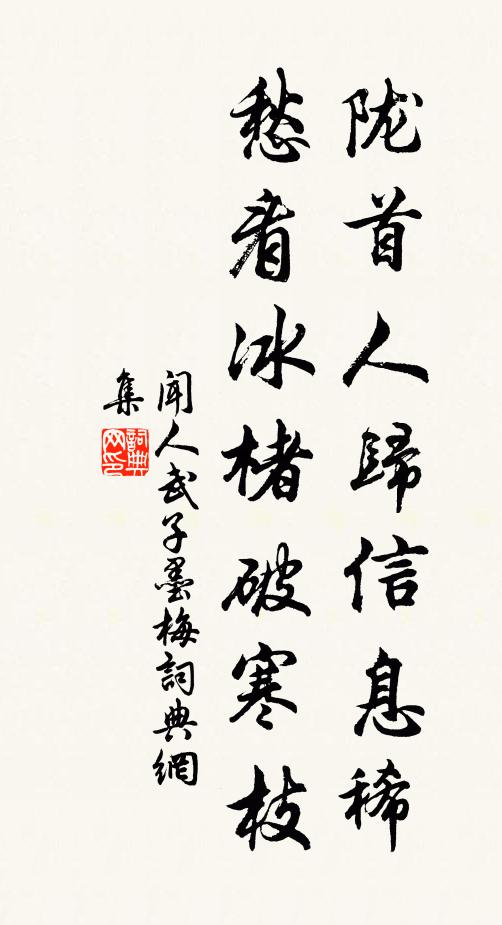 陇首人歸信息稀
愁看冰楮破寒枝
聞人武子墨梅詞典網
集
詞典
网印